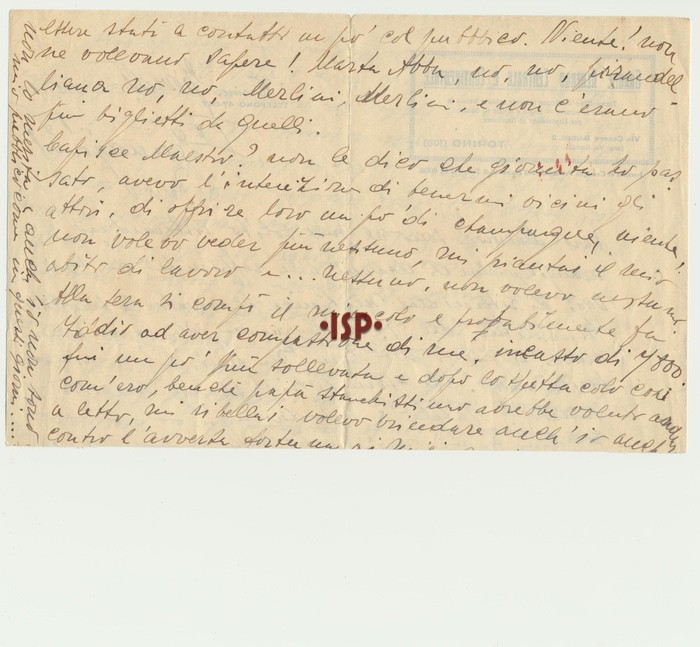 essere stati a contatto un po' col pubblico. Niente! non
ne volevano sapere! Marta Abba, no, no, pirandel-
liana no, no, Merlini, Merlini, e non c'erano
più biglietti da quelli.
Capisce Maestro? non le dico che giornata ho pas-
sato, avevo l'intenzione di tenermi vicini gli
attori, di offrire loro un po' di champagne, niente!
non volevo veder più nessuno, mi piantai il mio
abito di lavoro e... nessuno, non volevo nessuno.
Alla sera si compì il miracolo e probabilmente fu
Iddio ad aver compassione di me, incasso di 7000.
fui un po' più sollevata e dopo lo spettacolo così
com'ero, benché papà stanchissimo avrebbe voluto andar
a letto, mi ribellai volevo brindare anch'io anche
contro l'avversa fortuna
non lo merita e anch'io non sono
mio nemico come in questi giorni....
•ISP•
TORINO